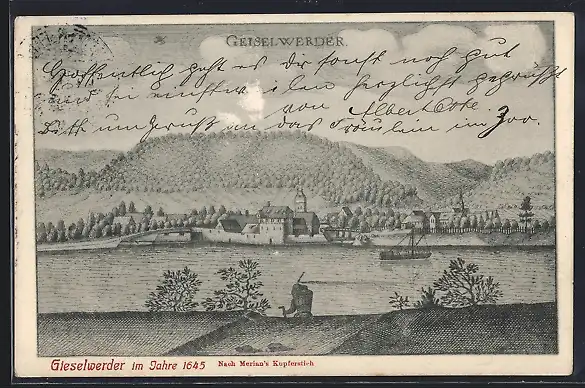 GEISELWERDER.
Hoffentlich geht es Dir sonst noch gut
und sei einstweilen herzlichst gegrüßt
von Albert Otte.
Bitte um Gruß an das Fräulein im Zoo.
Gieselwerder im Jahre 1645 Nach Merian's Kupferstich